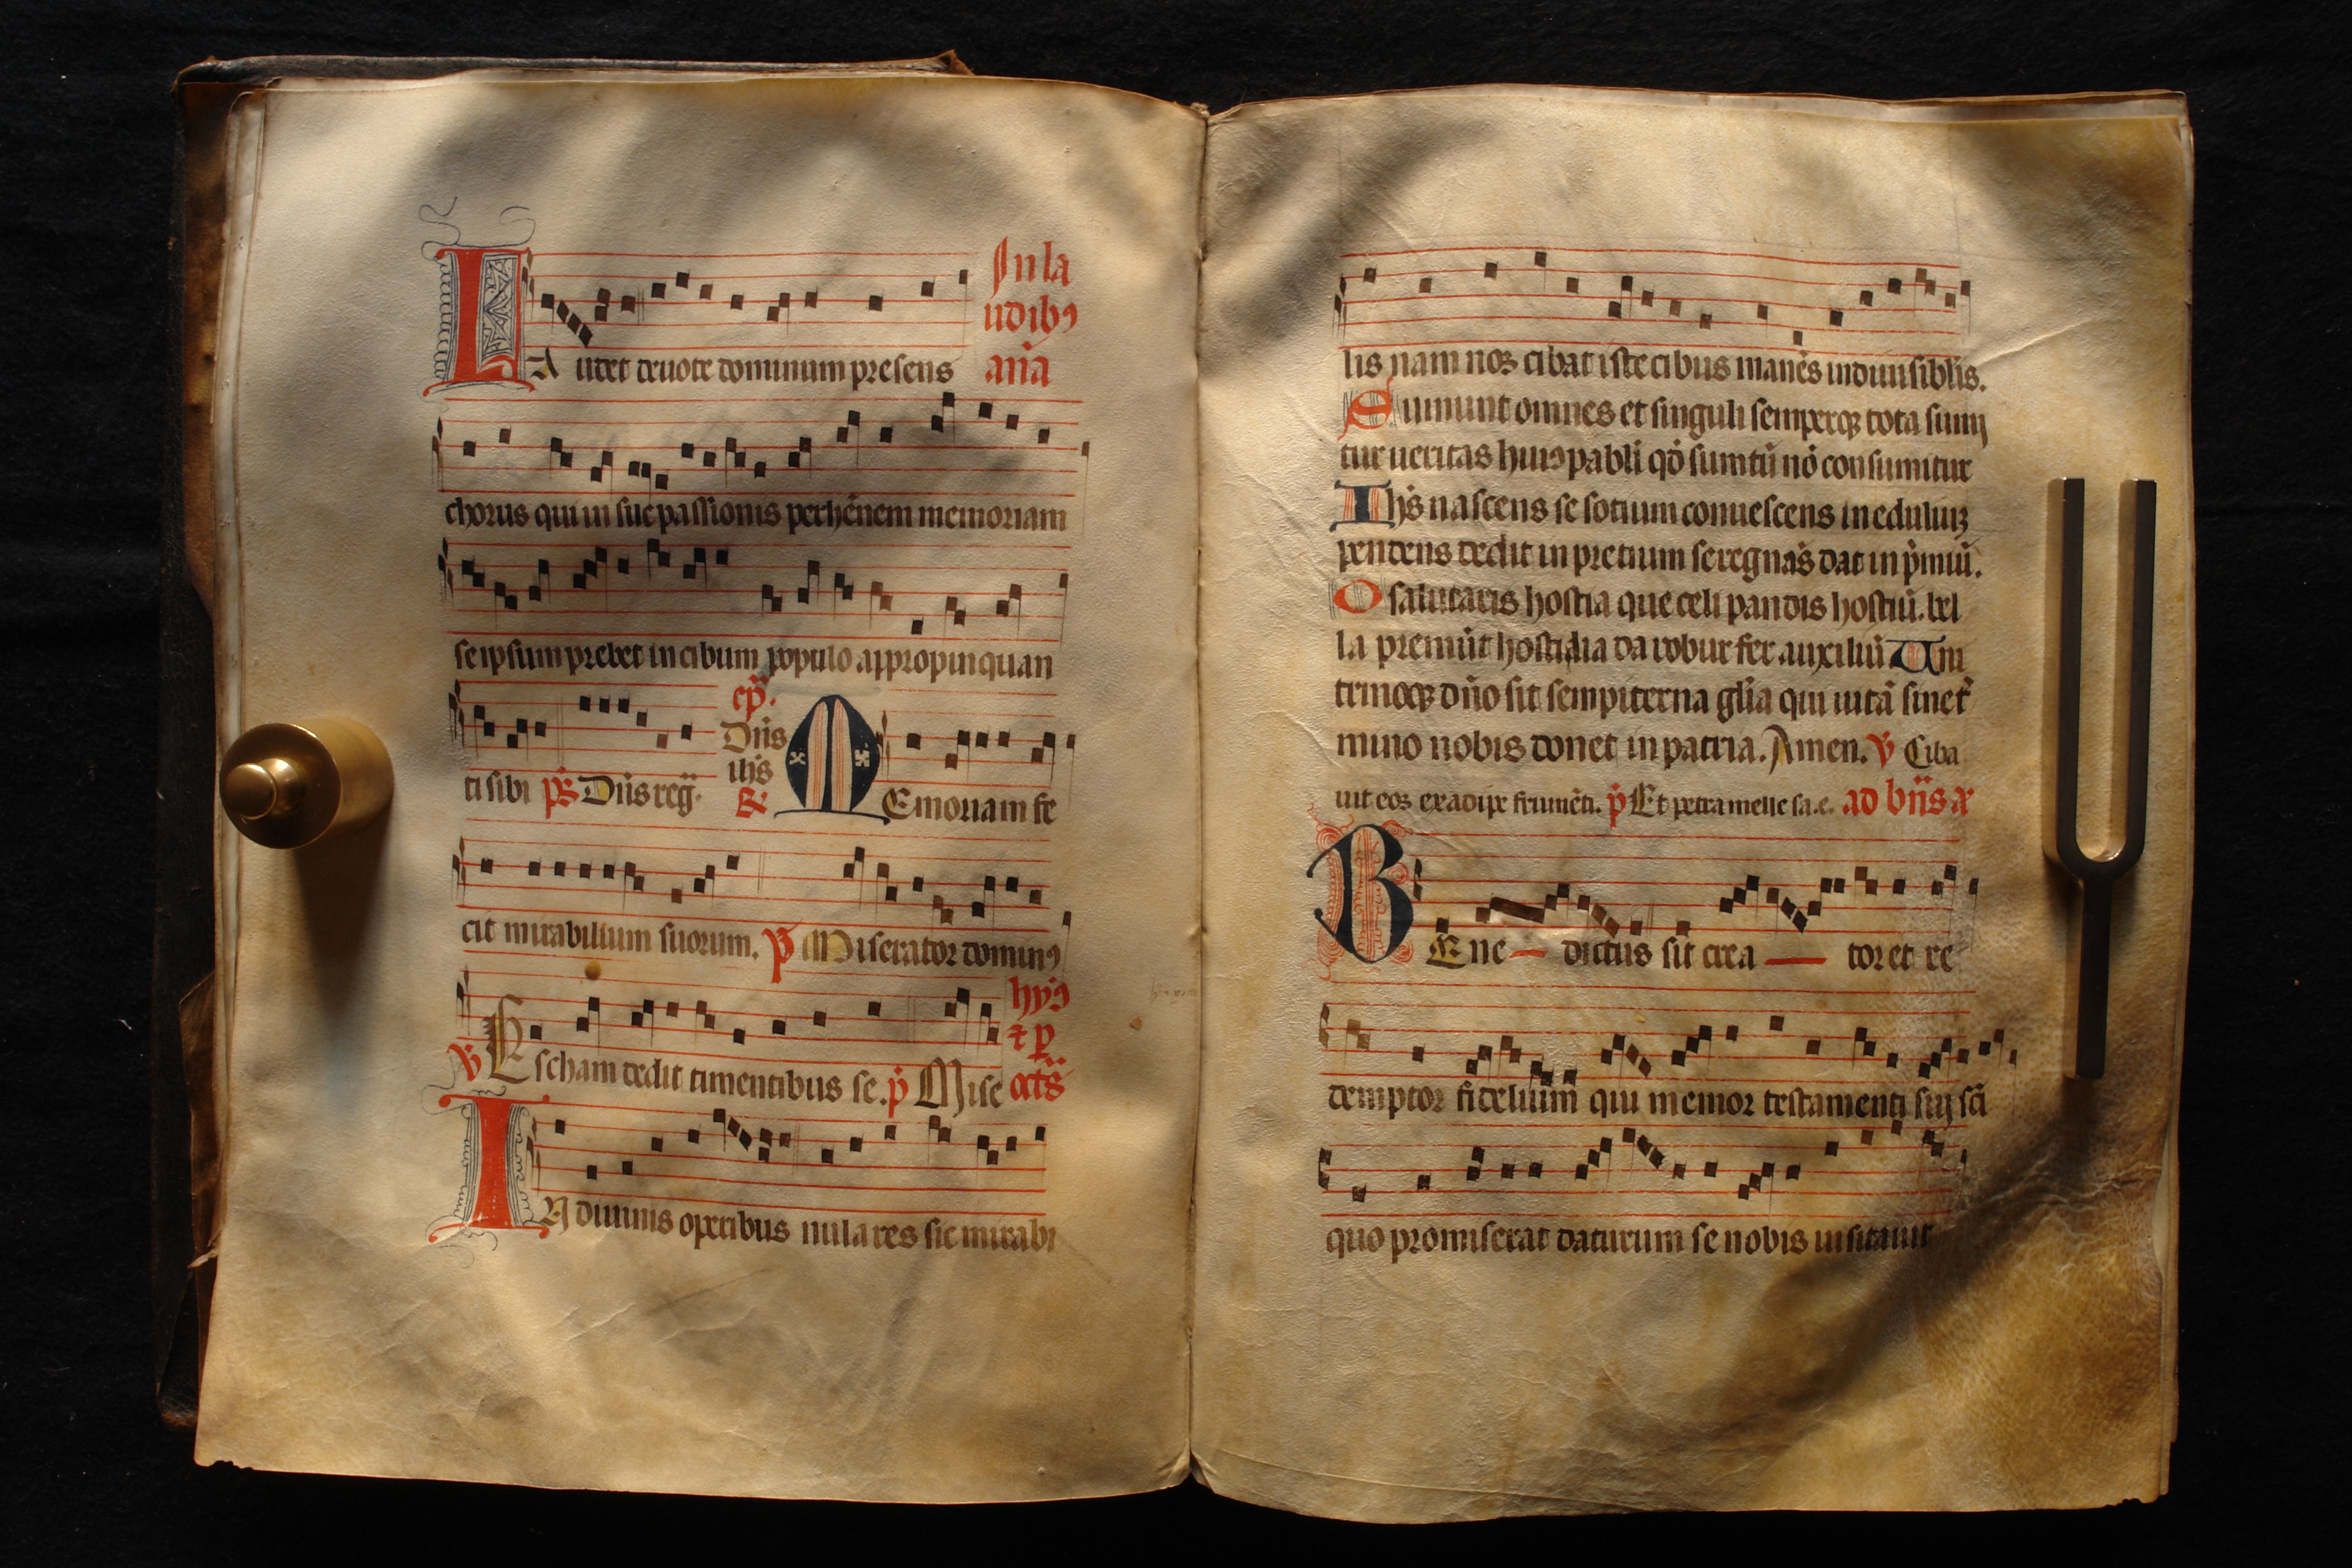 LAudet deuote dominum presens
In la
udibꝰ
an̄a
chorus qui in sue passionis perhēnem memoriam
se ipsum prebet in cibum populo appropinquan
ti sibi p̄s Dn̄s reḡ.
cp̄.
Dn̄s
ih̄s
℟
MEmoriam fe
cit mirabilium suorum. p̄ Miserator dominꝰ
℣ Escham dedit timentibus se. p̄ Mise
hyꝰ
⁊ p̄
oct̄s
IN diuinis operibus nula res sic mirabi
lis nam nos cibat iste cibus manēs indiuisibl̄is.
Sumunt omnes et singuli semperqꝫ tota sumi
tur ueritas huiꝰ pabl̄i qō sumtū nō consumitur
Ih̄s nascens se sotium conuescens in eduliuꝫ
pendens dedit in pretium se regnās dat in p̄miū.
O salutaris hostia que celi pandis hostiū. bel
la premūt hostilia da robur fer auxiliū Uni
trinoqꝫ dn̄o sit sempiterna gl̄ia qui uitā sine t̄
mino nobis donet in patria. Amen. ℣ Ciba
uit eos ex adipe frumēti. p̄ Et petra melle sa.e. ad bn̄s aᷓ
BEne dictus sit crea tor et re
demptor fidelium qui memor testamenti sui sc̄i
quo promiserat daturum se nobis uisitauit